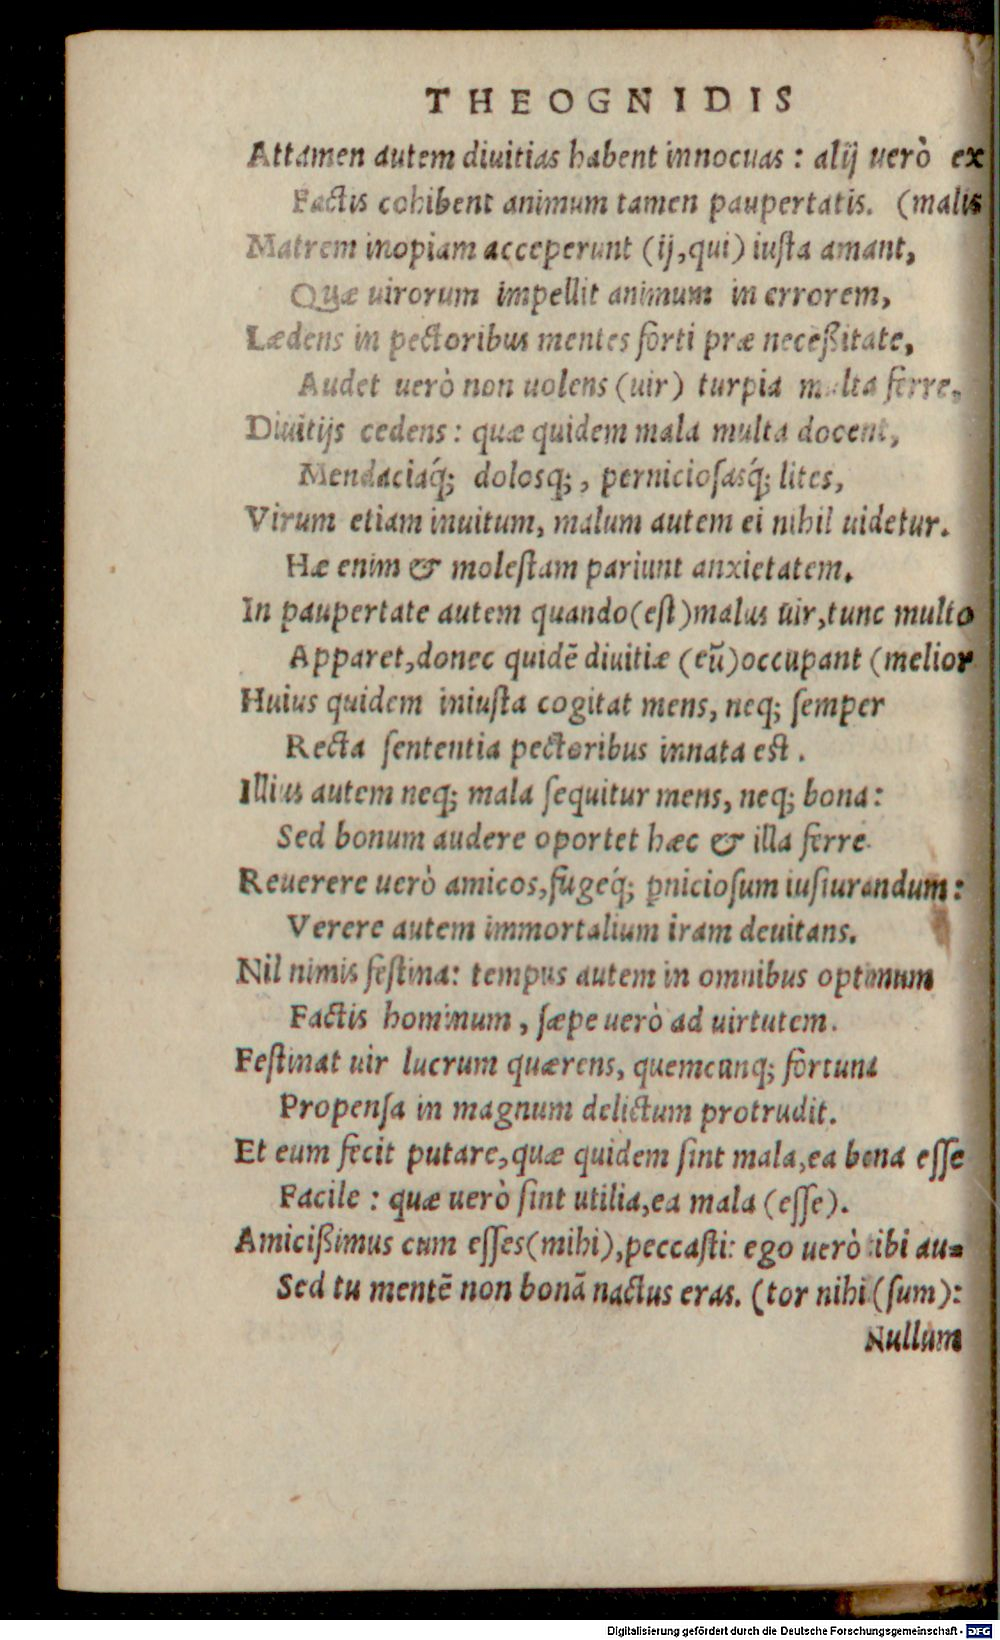 THEOGNIDIS
Attamen autem diuitias habent innocuas : alij uerò ex
Factis cohibent animum tamen paupertatis. (malis
Matrem inopiam acceperunt (ij,qui) iusta amant,
Quæ uirorum impellit animum in errorem,
Lædens in pectoribus mentes forti præ neceßitate,
Audet uerò non uolens (uir) turpia multa ferre,
Diuitijs cedens : quæ quidem mala multa docent,
Mendaciaq́; dolosq; , perniciosasq́; lites,
Virum etiam inuitum, malum autem ei nihil uidetur.
Hæ enim & molestam pariunt anxietatem.
In paupertate autem quando(est)malus uir,tunc multo
Apparet,donec quidẽ diuitiæ (eũ)occupant (melior
Huius quidem iniusta cogitat mens, neq; semper
Recta sententia pectoribus innata est .
Illius autem neq; mala sequitur mens, neq; bona:
Sed bonum audere oportet hæc & illa ferre.
Reuerere uerò amicos,fugeq́; ꝑniciosum iusiurandum :
Verere autem immortalium iram deuitans.
Nil nimis festina: tempus autem in omnibus optimum
Factis hominum , sæpe uerò ad uirtutem.
Festinat uir lucrum quærens, quemcunq; fortuna
Propensa in magnum delictum protrudit.
Et eum fecit putare,quæ quidem sint mala,ea bona esse
Facile : quæ uerò sint utilia,ea mala (esse).
Amicißimus cum esses(mihi),peccasti: ego uerò tibi au=
Sed tu mentẽ non bonã nactus eras. (tor nihi(sum):
Nullum
Digitalisierung gefördert durch die Deutsche Forschungsgemeinschaft - DFG